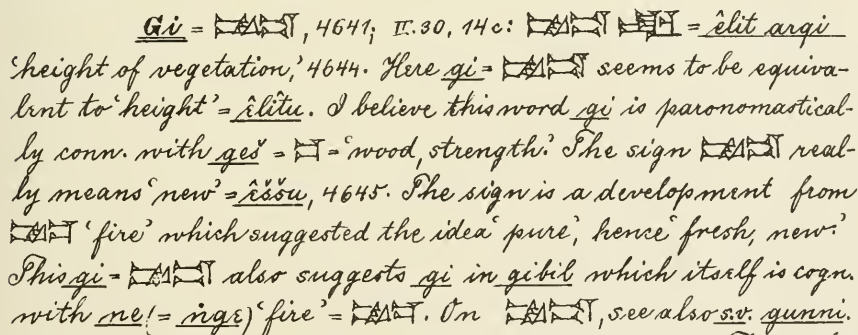 Gi = , 4641; II.30, 14c: = êlit arqi
‘height of vegetation,’ 4644. Here gi = seems to be equiva-
lent to ‘height’ = êlîtu. I believe this word gi is paronomastical-
ly conn. with geš = = ‘wood, strength.’ The sign real-
ly means ‘new’ = êššu, 4645. The sign is a development from
‘fire’ which suggested the idea ‘pure’, hence ‘fresh, new.’
This gi = also suggests gi in gibil which itself is cogn.
with ne (= ṅge) ‘fire’ = . On , see also s.v. gunni.